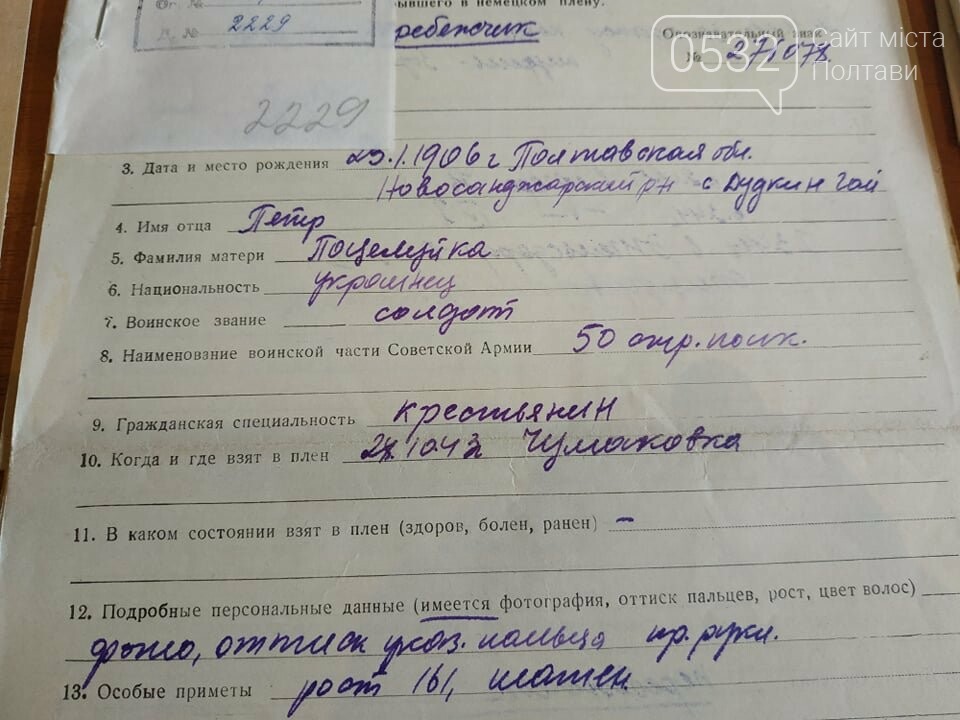 Ог. №
бывшего в немецком плену.
Л. № 2229
ребенчик
Опознавательный знак
№ 271078
0532 Сайт міста Полтави
2229
3. Дата и место рождения 29.1.1906 г Полтавская обл.
Новосанджарский рн с Дудкин Гай
4. Имя отца Петр
5. Фамилия матери Поцелуйка
6. Национальность украинец
7. Воинское звание солдат
8. Наименование воинской части Советской Армии 50 стр. полк.
9. Гражданская специальность крестьянин
10. Когда и где взят в плен 28.10.43 Чумаковка
11. В каком состоянии взят в плен (здоров, болен, ранен) –
12. Подробные персональные данные (имеется фотография, оттиск пальцев, рост, цвет волос)
фото, оттиск указ. пальца пр. руки.
13. Особые приметы рост 161, шатен